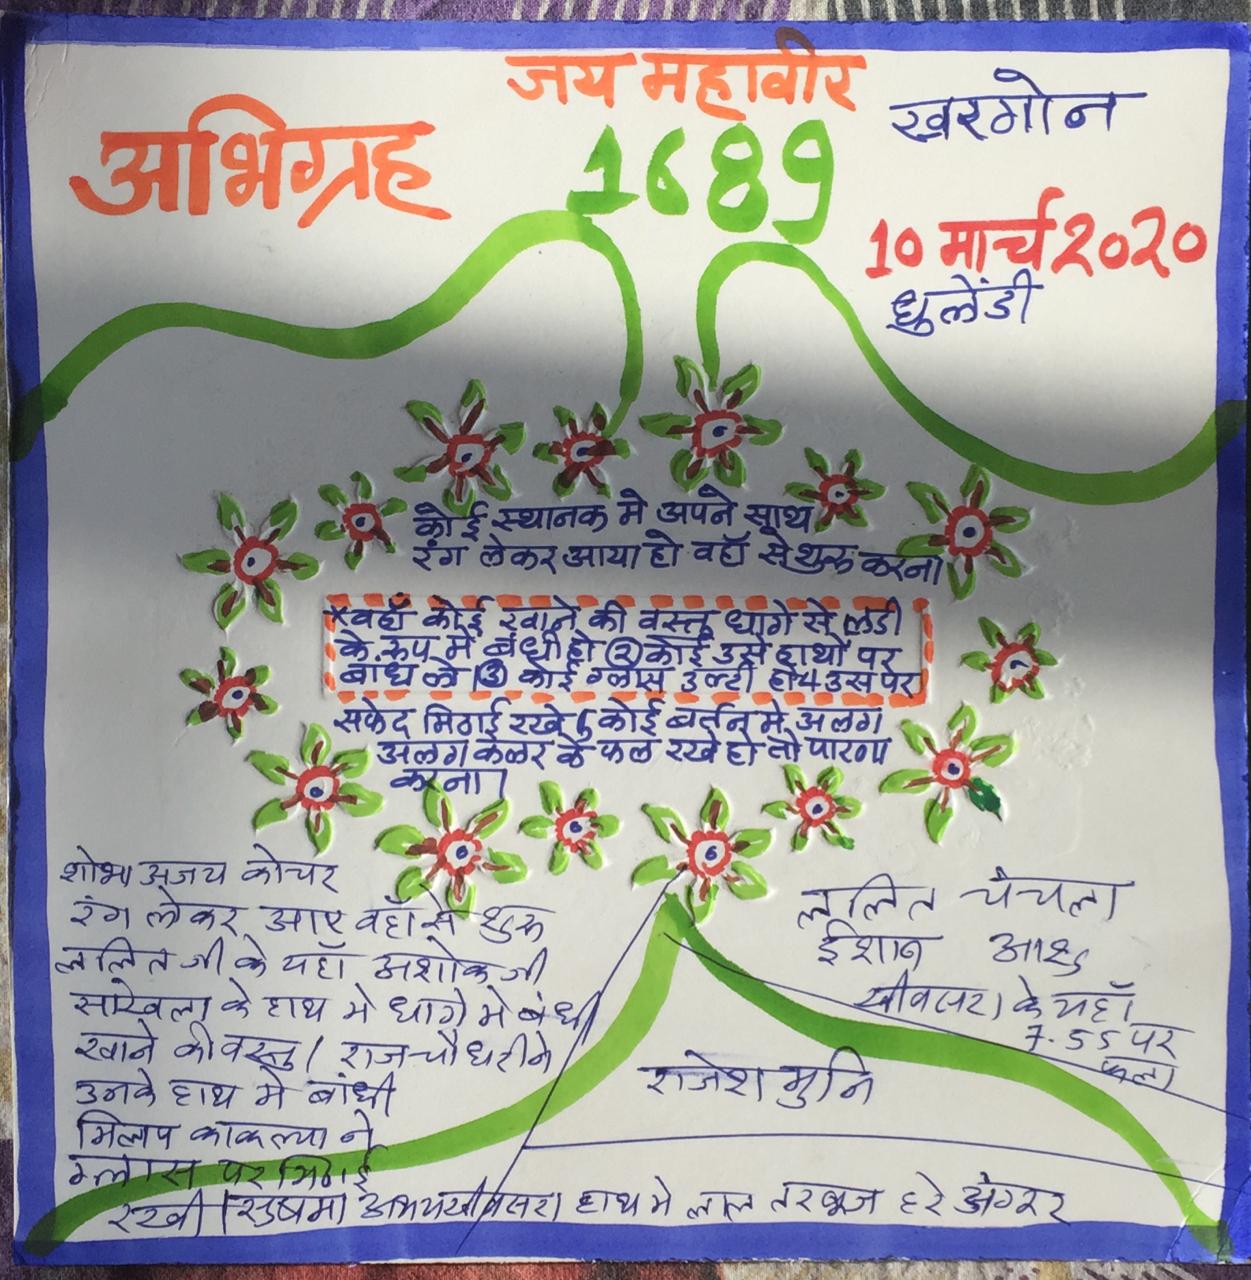 जय महावीर
अभिग्रह
1689
खरगोन
10 मार्च 2020
धुलेंडी
कोई स्थानक मे अपने साथ
रंग लेकर आया हो वहाँ से शुरू करना
* वहाँ कोई खाने की वस्तु धागे से लडी
के रूप मे बंधी हो ② कोई उसे हाथो पर
बांध ले ③ कोई ग्लास उल्टी हो 4 उस पर
सफेद मिठाई रखे 5 कोई बर्तन मे अलग
अलग कलर के फल रखे हो तो पारणा
करना।
शोभा अजय कोचर
रंग लेकर आए वहाँ से शुरू
ललित जी के यहाँ अशोक जी
सांखला के हाथ मे धागे मे बंधी
खाने की वस्तु / राज चौधरी ने
उनके हाथ मे बांधी
मिलाप काकल्या ने
ग्लास पर मिठाई
रखी / सुषमा अभय खींवसरा हाथ मे लाल तरबूज हरे अंगूर
ललित चंचला
ईशान
खींवसरा के यहाँ
7.55 पर
फला
राजेश मुनि